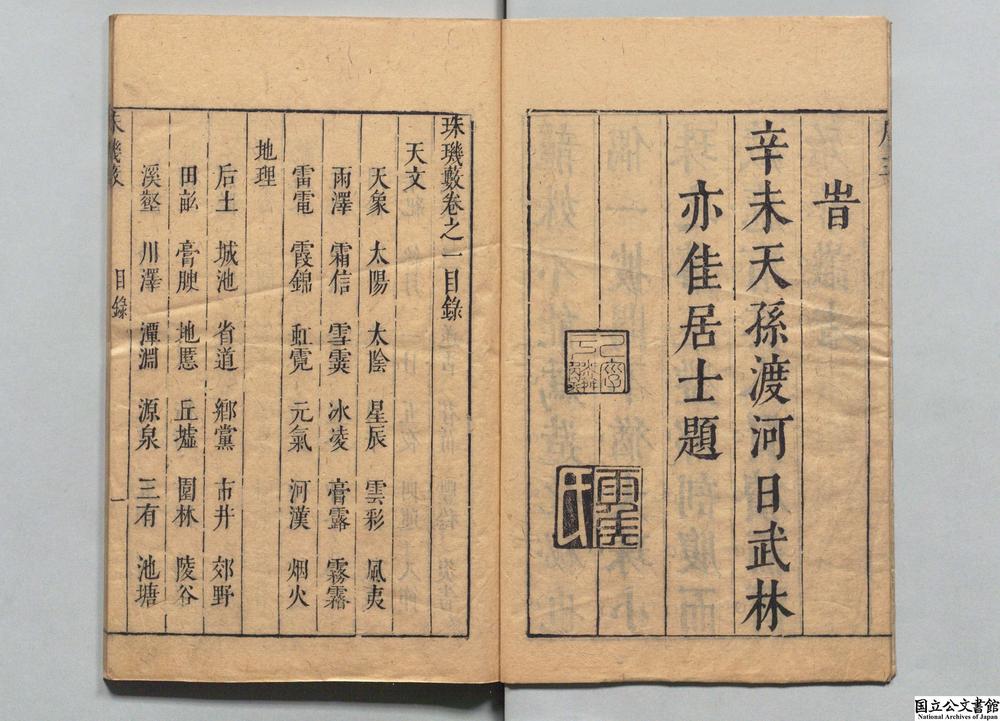 旹
辛未天孫渡河日武林
亦佳居士題
珠璣藪卷之一目錄
天文
天象 太陽 太陰 星辰 雲彩 風夷
雨澤 霜信 雪霙 冰凌 膏露 霧靄
雷電 霞錦 虹霓 元氣 河漢 烟火
地理
后土 城池 省道 鄉黨 市井 郊野
田畝 膏腴 地慝 丘墟 園林 陵谷
溪壑 川澤 潭淵 源泉 三有 池塘
目錄
一
国立公文書館
National Archives of Japan